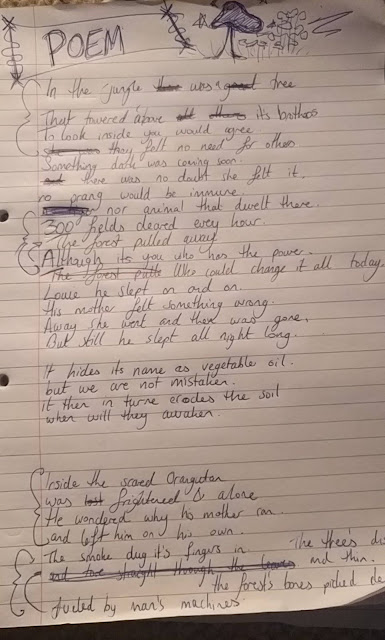 POEM
In the jungle there was a great tree
That towered above all others it's brothers
To look inside you would agree
they felt no need for others.
Something dark was coming soon.
and there was no doubt she felt it.
no prang would be immune.
nor animal that dwelt there.
300 fields cleared evey hour.
The forest pulled away
Although its you who has the power.
The forest pulls Who could change it all today.
Louie he slept on and on.
His mother felt something wrong.
Away she went and then was gone,
But still he slept all night long.
It hides its name as vegetable oil.
but we are not mistaken.
it then in turne erodes the soil
when will they awaken.
Inside the scared Orangutan
was lost frightened & alone
He wondered why his mother ran.
and left him on his own.
The smoke dug it's fingers in. The tree's di
and tore straight through the leaves and thin.
the forest's bones picked cle
fueled by man's machines